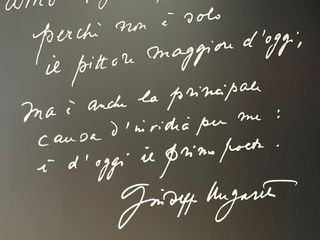 perchè non è solo
il pittore maggiore d'oggi,
ma è anche la principale
causa d'invidia per me:
è d'oggi il primo poeta.
Giuseppe Ungaretti